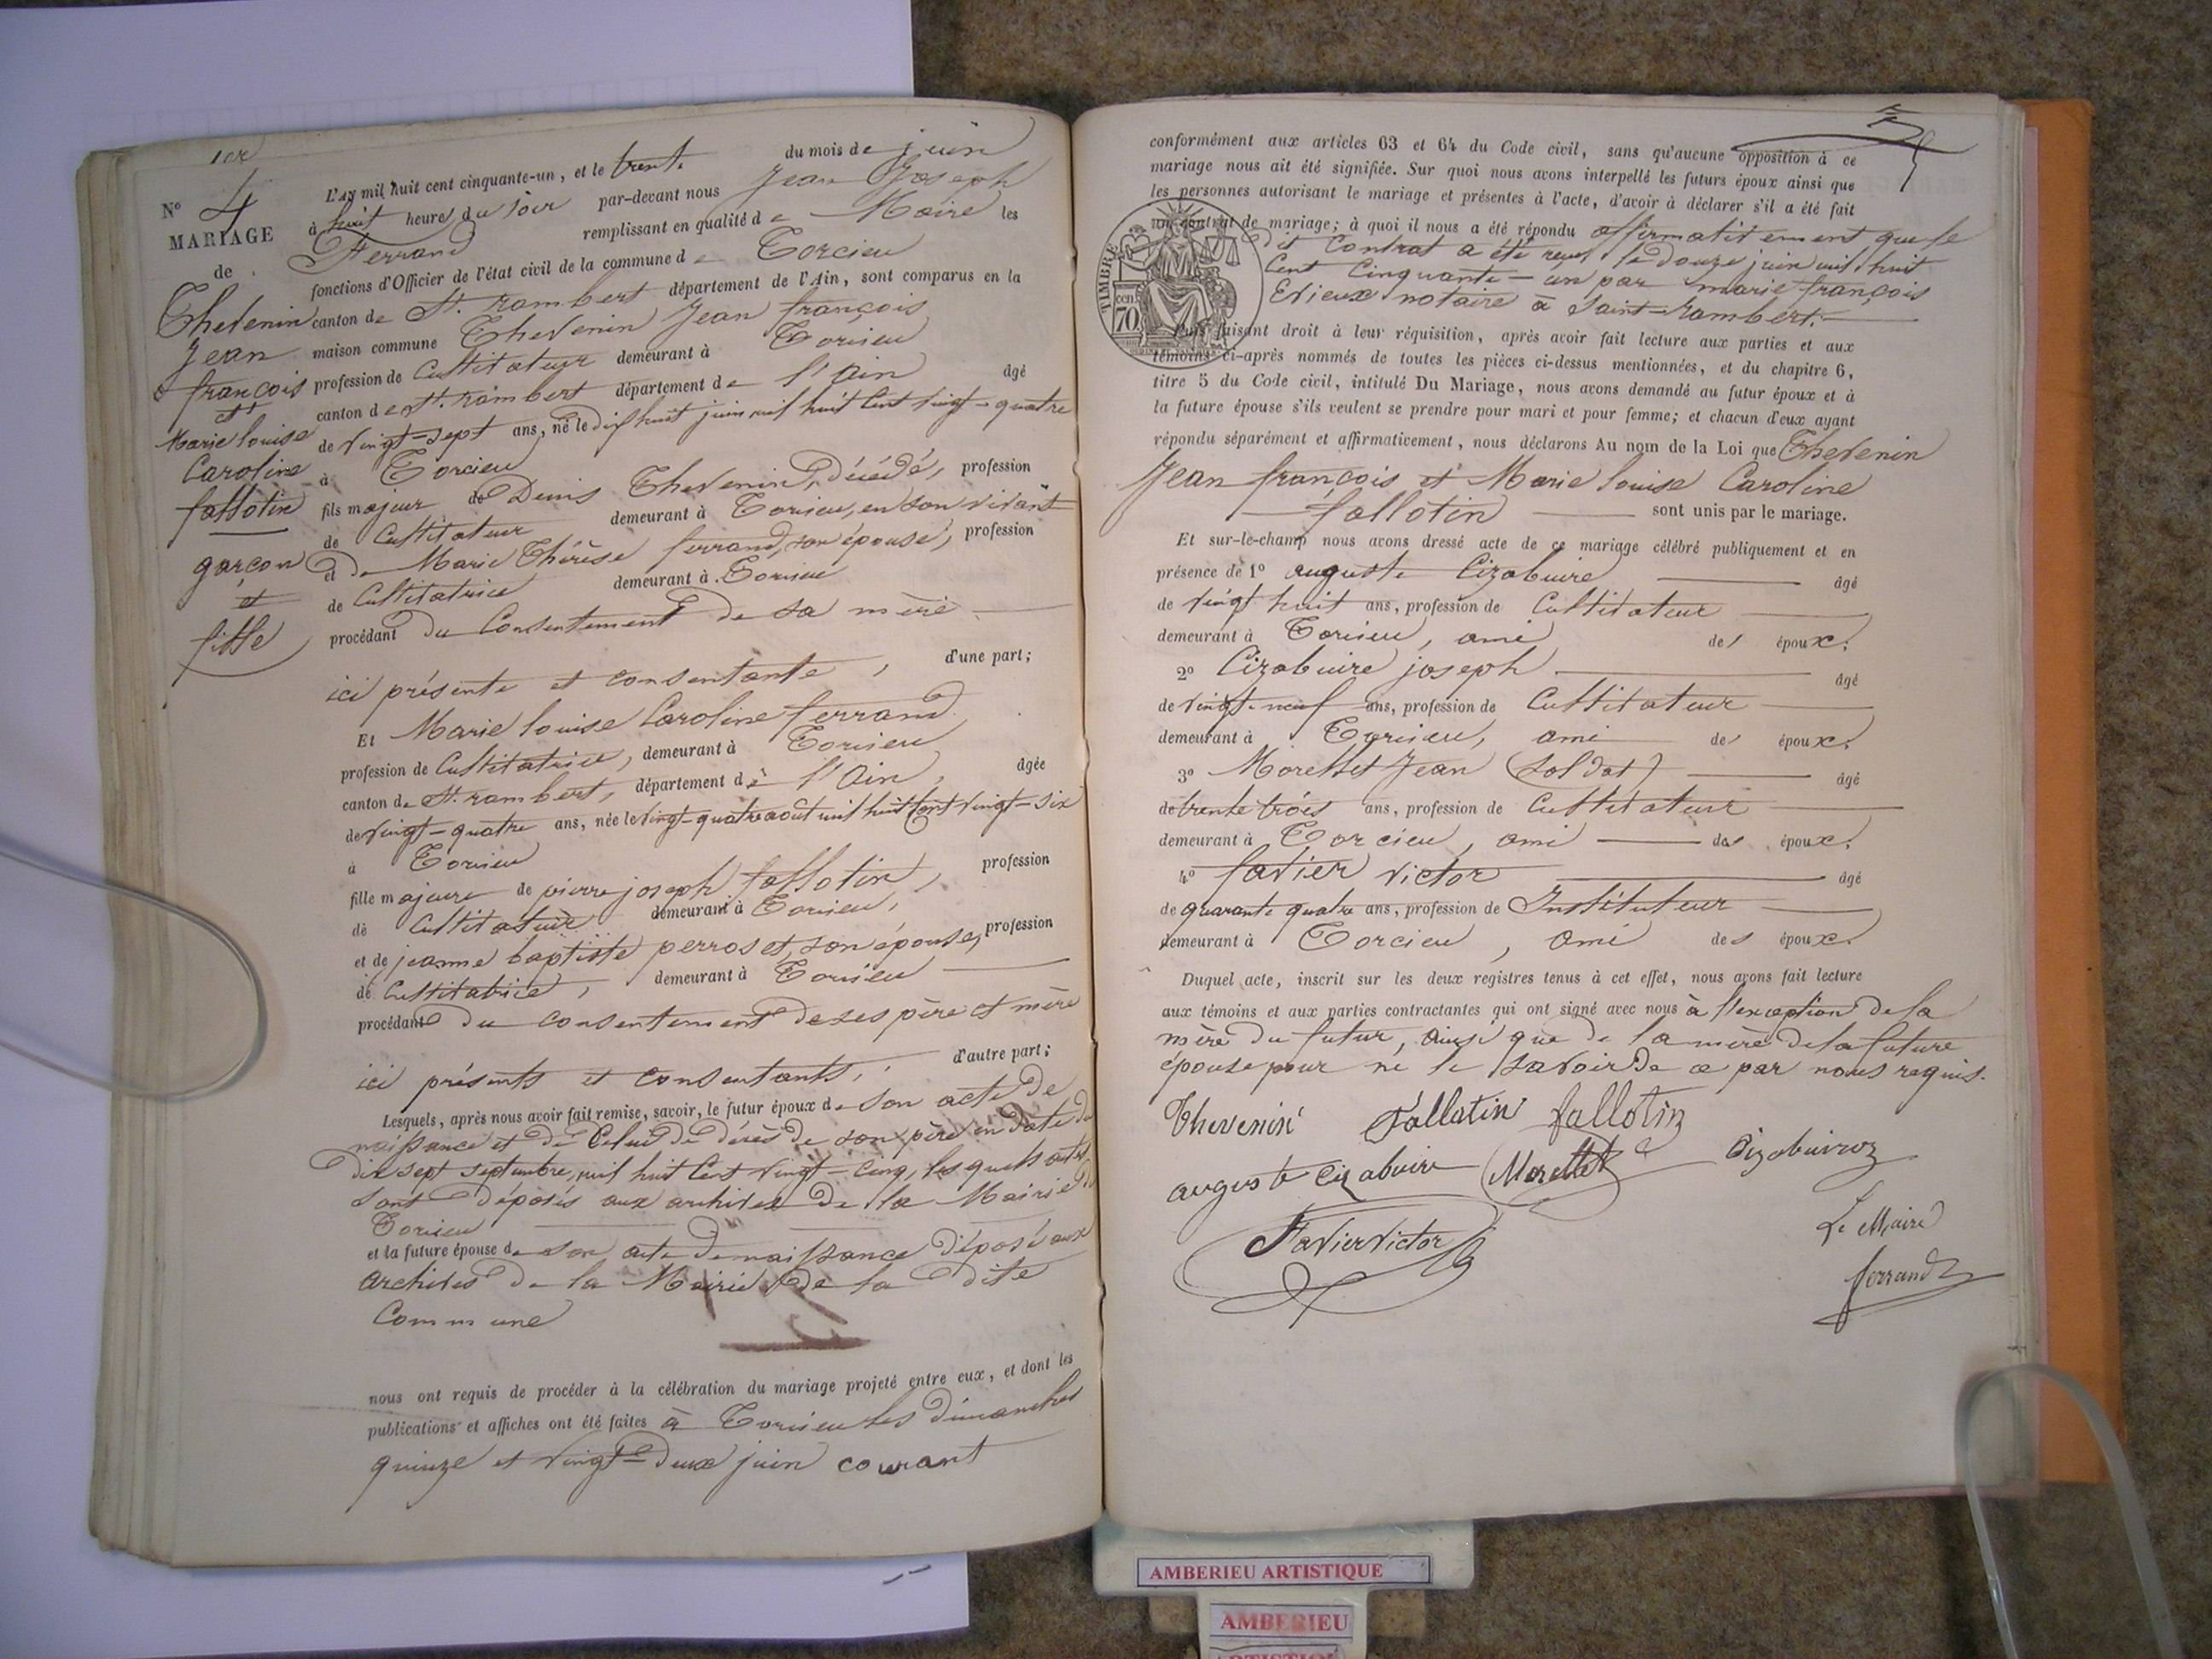 1er
N° 4
MARIAGE
de
Thevenin
Jean
françois
et
Marie louise
Caroline
fallotin
garçon
et
fille
L'An mil huit cent cinquante-un, et le trente du mois de juin
à huit heures du soir par-devant nous Jean Joseph
Ferrand remplissant en qualité de Maire les
fonctions d'Officier de l'état civil de la commune de Torcieu
canton de St. rambert département de l'Ain, sont comparus en la
maison commune Thevenin Jean françois
profession de Cultivateur demeurant à Torcieu
canton de St. rambert département de l'Ain âgé
de vingt-sept ans, né le dix huit juin mil huit Cent vingt-quatre
à Torcieu
fils majeur de Denis Thevenin, décédé, profession
de Cultivateur demeurant à Torcieu, en son vivant
et de Marie Thérèse ferrand, son épouse, profession
de Cultivatrice demeurant à Torcieu
procédant du Consentement de sa mère
ici présente et consentante, d'une part;
Et Marie louise Caroline ferrand
profession de Cultivatrice, demeurant à Torcieu
canton de St. rambert, département de l'Ain, âgée
de vingt-quatre ans, née le vingt-quatre août mil huit Cent vingt-six
à Torcieu
fille majeure de pierre joseph fallotin, profession
de Cultivateur demeurant à Torcieu,
et de jeanne baptiste perroset, son épouse, profession
de Cultivatrice, demeurant à Torcieu
procédant du consentement de ses père et mère
ici présents et consentants, d'autre part;
Lesquels, après nous avoir fait remise, savoir, le futur époux de son acte de
naissance et de Celui de décès de son père en date du
dix sept septembre, mil huit Cent vingt-cinq, les quels actes
sont déposés aux archives de la Mairie de
Torcieu
et la future épouse de son acte de naissance déposé aux
archives de la Mairie de la dite
Commune
nous ont requis de procéder à la célébration du mariage projeté entre eux, et dont les
publications et affiches ont été faites à Torcieu les dimanches
quinze et vingt-deux juin courant
conformément aux articles 63 et 64 du Code civil, sans qu'aucune opposition à ce
mariage nous ait été signifiée. Sur quoi nous avons interpellé les futurs époux ainsi que
les personnes autorisant le mariage et présentes à l'acte, d'avoir à déclarer s'il a été fait
un contrat de mariage; à quoi il nous a été répondu affirmativement que le
dit Contrat a été reçu le douze juin mil huit
Cent Cinquante-un par marie françois
Evieux notaire à Saint-rambert.
TIMBRE
cen 70
Puis faisant droit à leur réquisition, après avoir fait lecture aux parties et aux
témoins ci-après nommés de toutes les pièces ci-dessus mentionnées, et du chapitre 6,
titre 5 du Code civil, intitulé Du Mariage, nous avons demandé au futur époux et à
la future épouse s'ils veulent se prendre pour mari et pour femme; et chacun d'eux ayant
répondu séparément et affirmativement, nous déclarons Au nom de la Loi que Thevenin
Jean françois et Marie louise Caroline
fallotin sont unis par le mariage.
Et sur-le-champ nous avons dressé acte de ce mariage célébré publiquement et en
présence de 1° auguste Cizabuire âgé
de vingt huit ans, profession de Cultivateur
demeurant à Torcieu, ami des époux.
2° Cizabuire joseph âgé
de vingt-neuf ans, profession de Cultivateur
demeurant à Torcieu, ami des époux.
3° Morellet Jean (soldat) âgé
de trente trois ans, profession de Cultivateur
demeurant à Torcieu, ami des époux.
4° favier victor âgé
de quarante quatre ans, profession de Instituteur
demeurant à Torcieu, ami des époux.
Duquel acte, inscrit sur les deux registres tenus à cet effet, nous avons fait lecture
aux témoins et aux parties contractantes qui ont signé avec nous à l'exception de la
mère du futur, ainsi que de la mère de la future
épouse pour ne le savoir de ce par nous requis.
Thevenin fallatin fallotin
auguste Cizabuire Morellet Cizabuiroz
Favier victor
Le Maire
ferrand
AMBERIEU ARTISTIQUE
AMBERIEU
ARTISTIQUE